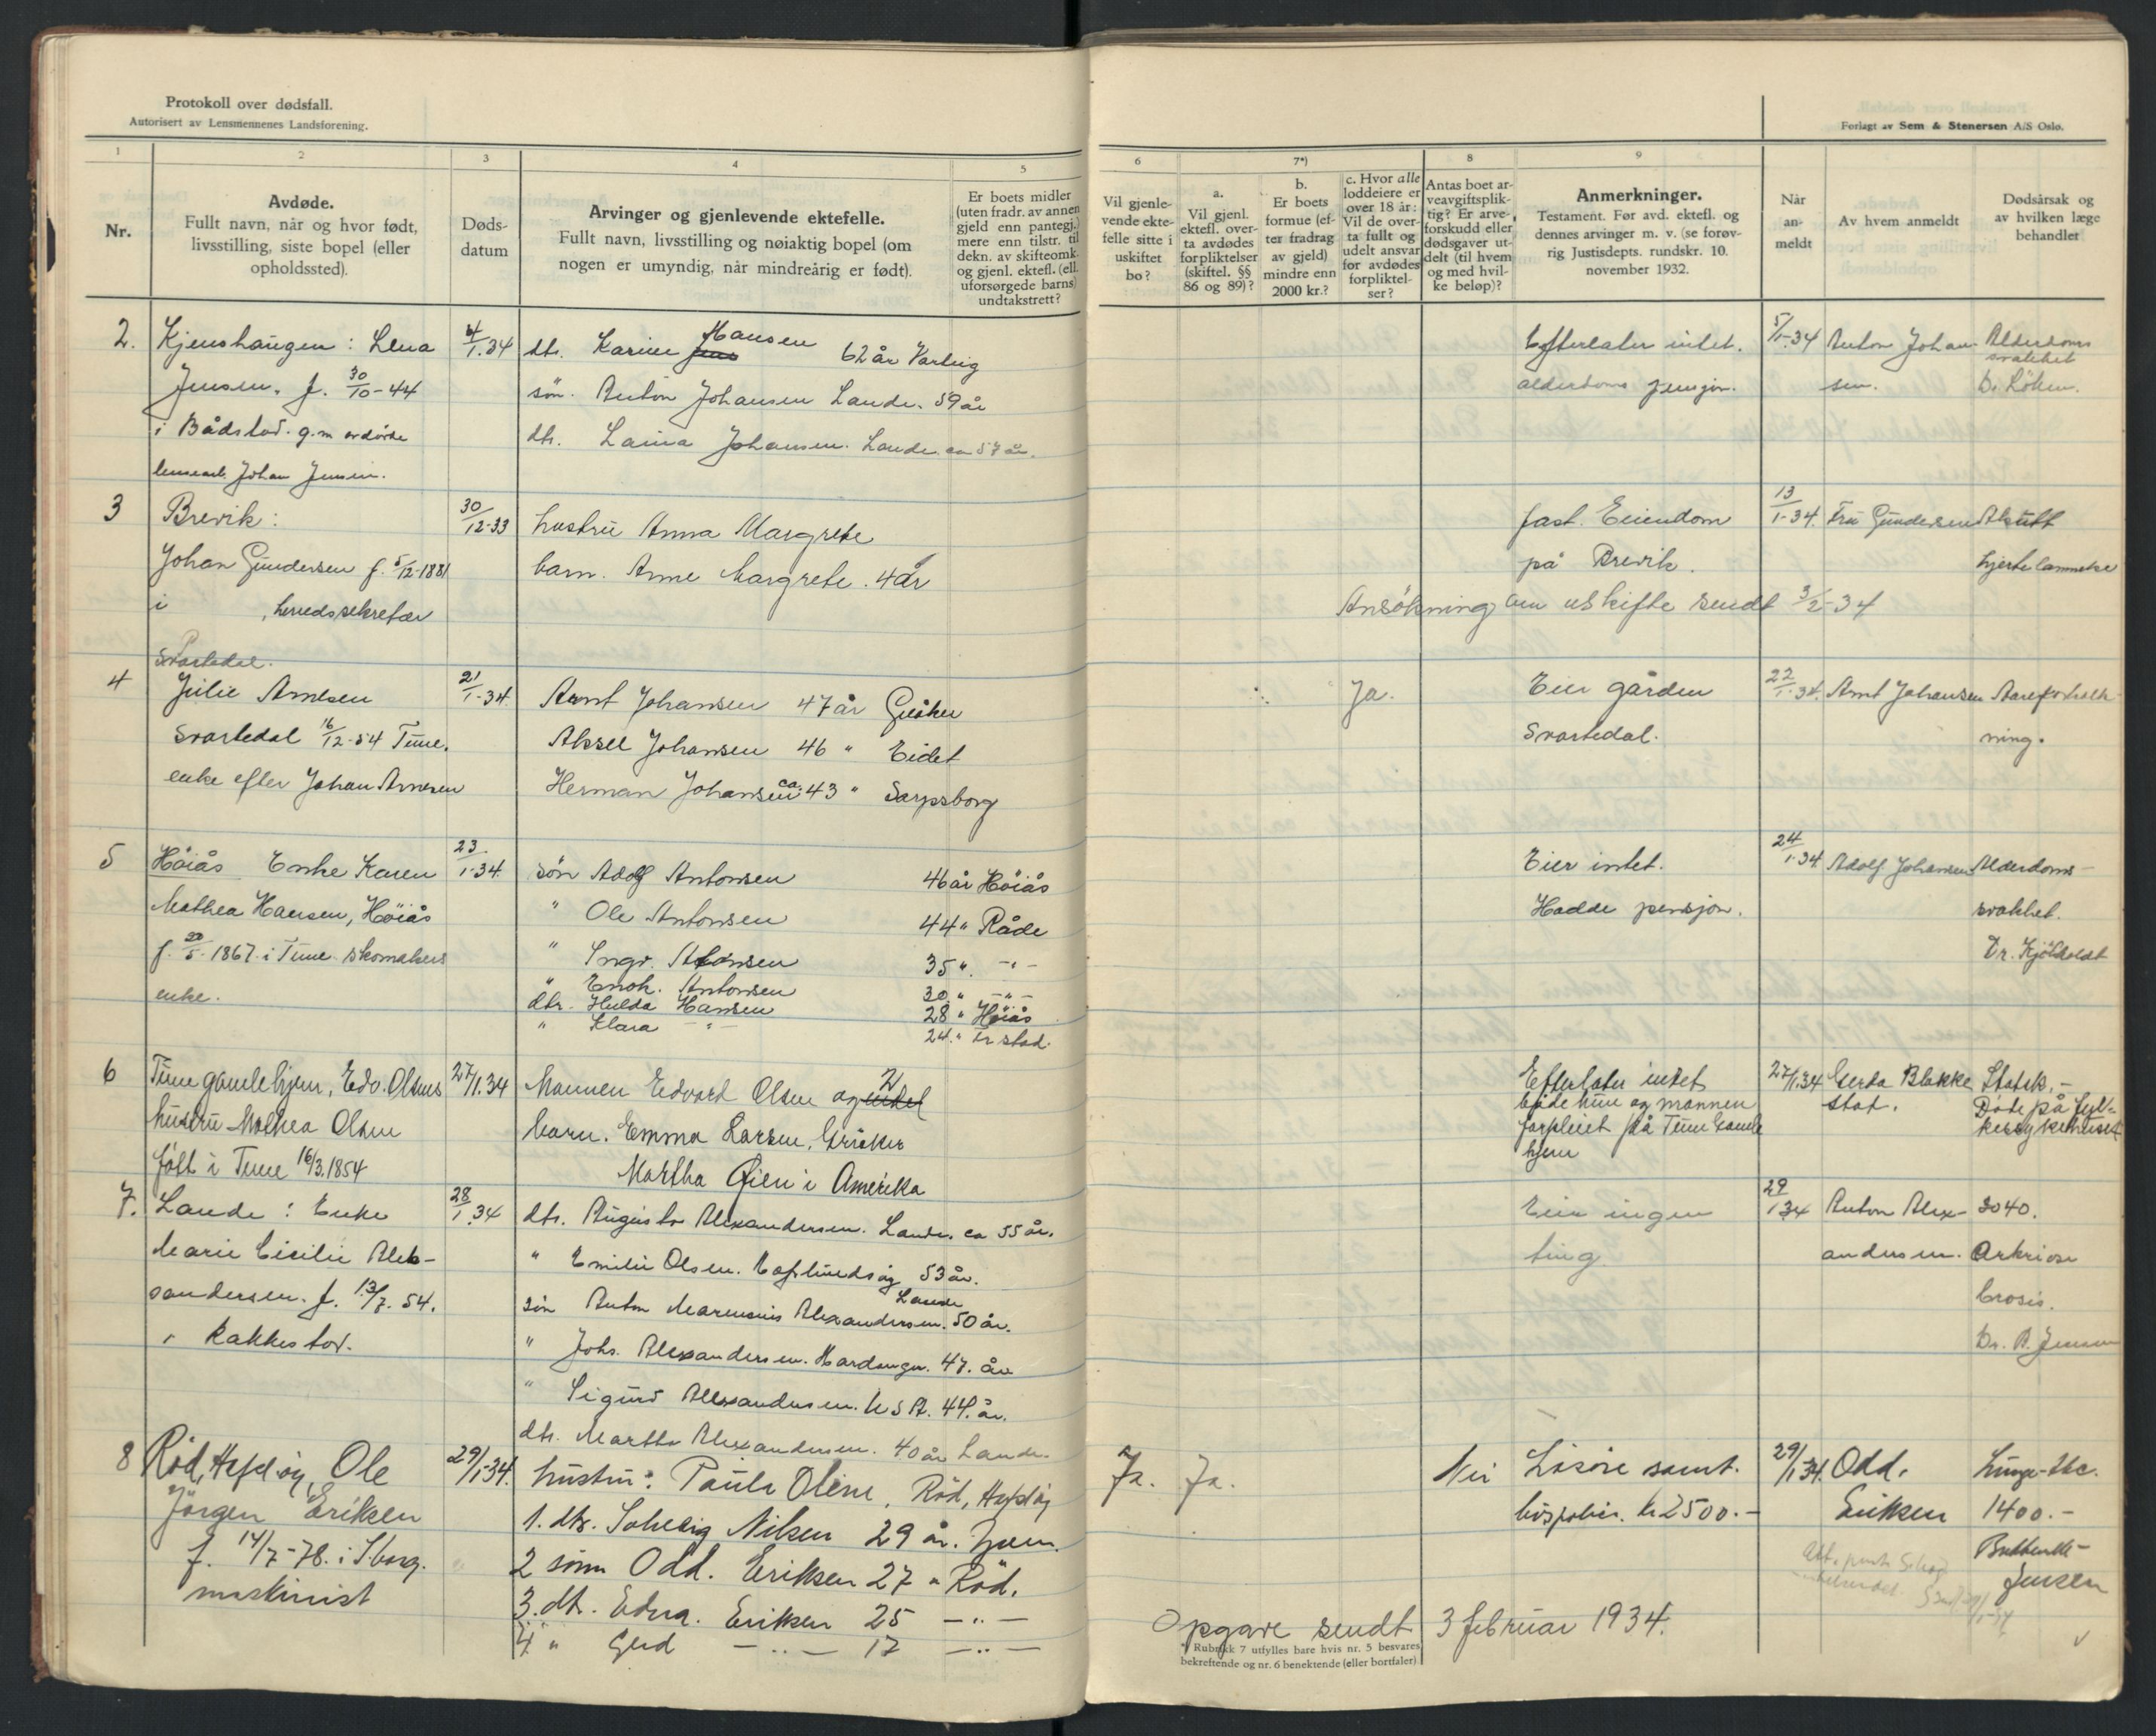 Protokoll over dødsfall.
Autorisert av Lensmennenes Landsforening.
Forlagt av Sem & Stenersen A/S Oslo.
1
2
3
4
5
6
7*)
8
9
Nr.
Avdøde.
Fullt navn, når og hvor født,
livsstilling, siste bopel (eller
opholdssted).
Døds-
datum
Arvinger og gjenlevende ektefelle.
Fullt navn, livsstilling og nøiaktig bopel (om
nogen er umyndig, når mindreårig er født).
Er boets midler
(uten fradr. av annen
gjeld enn pantegj.)
mere enn tilstr. til
dekn. av skifteomk.
og gjenl. ektefl. (ell.
uforsørgede barns)
undtakstrett?
Vil gjenle-
vende ekte-
felle sitte i
uskiftet
bo?
a.
Vil gjenl.
ektefl. over-
ta avdødes
forpliktelser
(skiftel. §§
86 og 89)?
b.
Er boets
formue (ef-
ter fradrag
av gjeld)
mindre enn
2000 kr.?
c. Hvor alle
loddeiere er
over 18 år:
Vil de over-
ta fullt og
udelt ansvar
for avdødes
forpliktel-
ser?
Antas boet ar-
veavgiftsplik-
tig? Er arve-
forskudd eller
dødsgaver ut-
delt (til hvem
og med hvil-
ke beløp)?
Anmerkninger.
Testament. Før avd. ektefl. og
dennes arvinger m. v. (se forøv-
rig Justisdepts. rundskr. 10.
november 1932.
Når
an-
meldt
Av hvem anmeldt
Dødsårsak og
av hvilken læge
behandlet
2.
Kjenshaugen: Lena
Jensen. f. 30/10-44
i Bådstad. g.m avdøde
Johan Jensen.
4/1.34
dtr. Karine Hansen 62 år Varteig
søn. Anton Johansen Lande. 59 år
dtr. Laura Johansen. Lande. ca 57 år.
Efterlater intet.
alderdoms pensjon.
5/1-34
Anton Johan-
sen.
Alderdoms
svakhet
Dr. Löken.
3
Brevik:
Johan Gundersen f. 5/12-1881
i , herredssekretær
30/12-33
hustru Anna Margrete
barn. Anne Margrete. 4 år
fast. Eiendom
på Brevik.
Ansökning om uskifte sendt 3/2-34
13/1-34.
Fru Gundersen
Akutt
hjertelammelse
4
Svartedal.
Julie Arnesen
Svartedal 16/12-54 Tune.
enke efter Johan Arnesen
21/1-34
Arnt Johansen 47 år Greåker
Aksel Johansen 46 " Eidet
Herman Johansen ca. 43 " Sarpsborg
Ja.
Eier gården
Svartedal.
22/1-34.
Arnt Johansen
Aareforkalk-
ning.
5
Höiås Enke Karen
Mathea Hansen, Höiås
f. 1867. i Tune. skomakers
enke.
23/1-34.
sön Adolf Antonsen 46 år Höiås
" Ole Antonsen 44 " Råde
" Ingv. Antonsen 35 ". -"-
" Enok. Antonsen 30. " -"-
dtr. Hulda Hansen 28 " Höiås
" Klara -"- 24. " Fr stad.
Eier intet.
Hadde pensjon.
24/1-34.
Adolf Johansen
Alderdoms-
svakhet.
Dr. Kjölholdt
6
Tune gamlehjem, Edv. Olsens
hustru Mathea Olsen
född i Tune 16/3.1854
27/1.34
Mannen Edvart Olsen og 2
barn. Emma Larsen, Gråker
Martha Øien i Amerika
Efterlater intet
både hun og mannen
forpleiet på Tune Gamle
hjem
27/1.34
Gerda Blakke
stad.
Døde på Fyl-
kessykehuset
7.
Lande: Enke
Marie Cicilie Alek-
sandersen. f. 13/7. 54.
i Kakkestad.
28/1.34
dtr. Augusta Alexandersen. Lande. ca 55 år.
" Emilie Olsen. Hafslundsøy 53 år.
Lande
sön Anton Marensius Alexandersen. 50 år.
" Johs. Alexandersen. Hardanger. 47. år
" Sigurd Alexandersen. U S A. 44. år.
dtr. Martha Alexandersen. 40 år Lande.
Eier ingen
ting
29/1 34
Anton Alex-
andersen.
3040.
Dr. A. Jensen
8
Röd, Hafsl.öy, Ole
Jörgen Eriksen
f. 14/7-78. i S.borg.
maskinist
29/1-34.
hustru: Paula Oline, Röd, Hafsl.öy
1. dtr. Solveig Nilsen 29 år. hjem.
2 sönn Odd. Eriksen 27 " Röd.
3. dtr. Edna. Eriksen 25 -"-
4. " Gerd -"- 17 -"-
Ja.
Ja.
Nei
Lösöre samt.
kr 2500.-
29/1-34.
Odd.
Eriksen
1400.-
Jensen
Opgave sendt 3 februar 1934.
*) Rubrikk 7 utfylles bare hvis nr. 5 besvares
bekreftende og nr. 6 benektende (eller bortfaler)